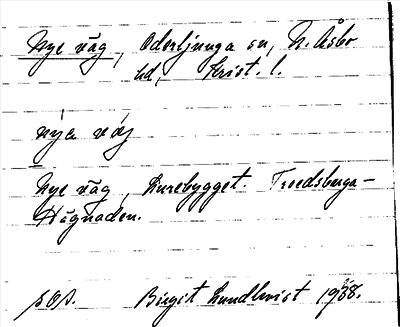 Nye väg, Oderljunga sn, N. Åsbo
hd, Krist. l.
nýa vǽj
Nye väg, Lurebygget. Troedsberga-
Hägnaden.
s. O. s. Birgit Lundkvist 1938.